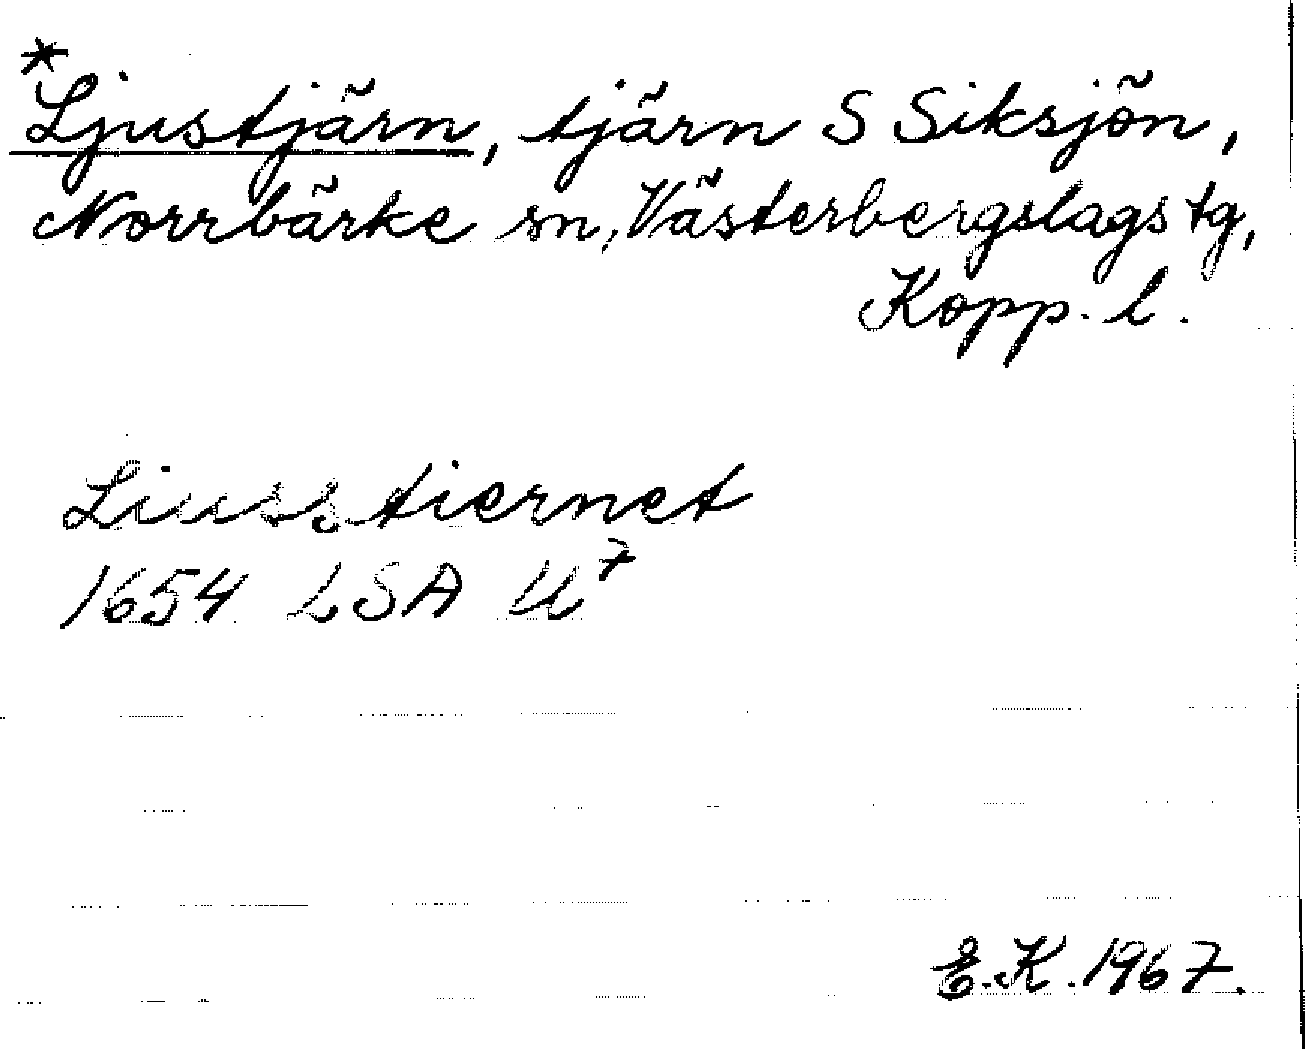 *
Ljustjärn, tjärn S Siksjön,
Norrbärke sn, Västerbergslags tg,
Kopp. l.
Liusstiernet
1654 LSA U⁷
E.K. 1967.